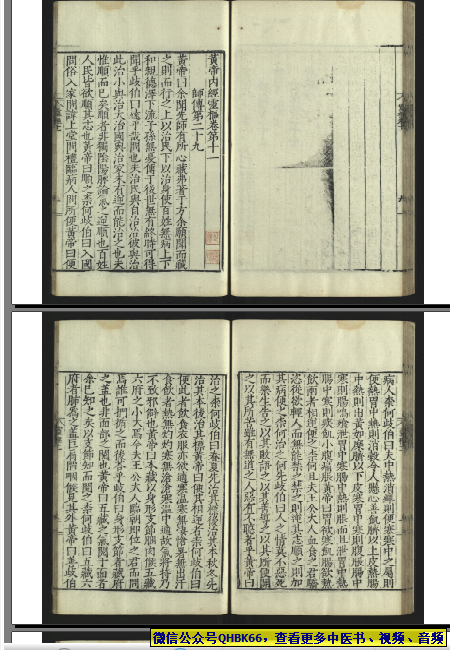 黃帝内經靈樞卷第十一
師傳第二十九
黃帝曰余聞先師有所心藏弗著于方余願聞而藏
之則而行之上以治民下以治身使百姓無病上下
和親德澤下流子孫無憂傳于後世無有終時可得
聞乎歧伯曰遠乎哉問也夫治民與自治治彼與治
此治小與治大治國與治家未有逆而能治之也夫
惟順而已矣順者非獨陰陽脉論氣之逆順也百姓
人民皆欲順其志也黃帝曰順之柰何歧伯曰入國
問俗入家問諱上堂問禮臨病人問所便黃帝曰便
病人柰何歧伯曰夫中熱消癉則便寒寒中之屬則
便熱胃中熱則消穀令人懸心善飢臍以上皮熱腸
中熱則出黃如糜臍以下皮寒胃中寒則腹脹腸中
寒則腸鳴飱泄胃中寒腸中熱則脹而且泄胃中熱
腸中寒則疾飢小腹痛脹黃帝曰胃欲寒飲腸欲熱
飲兩者相逆便之柰何且夫王公大人血食之君驕
恣從欲輕人而無能禁之禁之則逆其志順之則加
其病便之柰何治之何先歧伯曰人之情莫不惡死
而樂生告之以其敗語之以其善導之以其所便開
之以其所苦雖有無道之人惡有不聽者乎黃帝曰
治之柰何歧伯曰春夏先治其標後治其本秋冬先
治其本後治其標黃帝曰便其相逆者柰何歧伯曰
便此者食飲衣服亦欲適寒溫寒無凄愴暑無出汗
食飲者熱無灼灼寒無滄滄寒溫中適故氣將持乃
不致邪僻也黃帝曰本藏以身形支節䐃肉候五藏
六府之小大焉今夫王公大人臨朝即位之君而問
焉誰可捫循之而後荅乎歧伯曰身形支節者藏府
之蓋也非面部之閱也黃帝曰五藏之氣閱于面者
余已知之矣以支節知而閱之柰何歧伯曰五藏六
府者肺爲之蓋巨肩陷咽候見其外黃帝曰善歧伯
微信公众号QHBK66，查看更多中医书、视频、音频